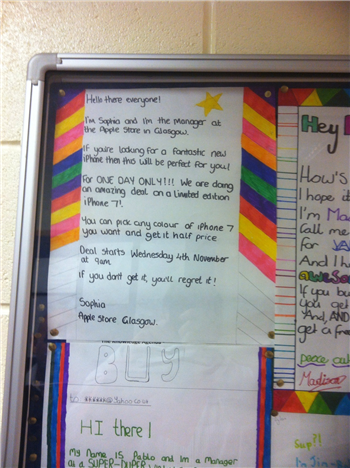 Hello there everyone!
I'm Sophia and I'm the manager at
the Apple Store in Glasgow.
If you're looking for a fantastic new
iPhone then this will be perfect for you!
For ONE DAY ONLY!!! We are doing
an amazing deal on a limited edition
iPhone 7!.
You can pick any colour of iPhone 7
you want and get it half price
Deal starts Wednesday 4th November
at 9am.
If you don't get it, you'll regret it!
Sophia
Apple Store Glasgow.
BUY
HI there!
My Name IS Pablo and Im a Manager
Hey
How's
I hope
I'm
Call me
for
And I h
awesome
If you bu
you get
And, AND
get a fre
peace out
Madison
Sup?!